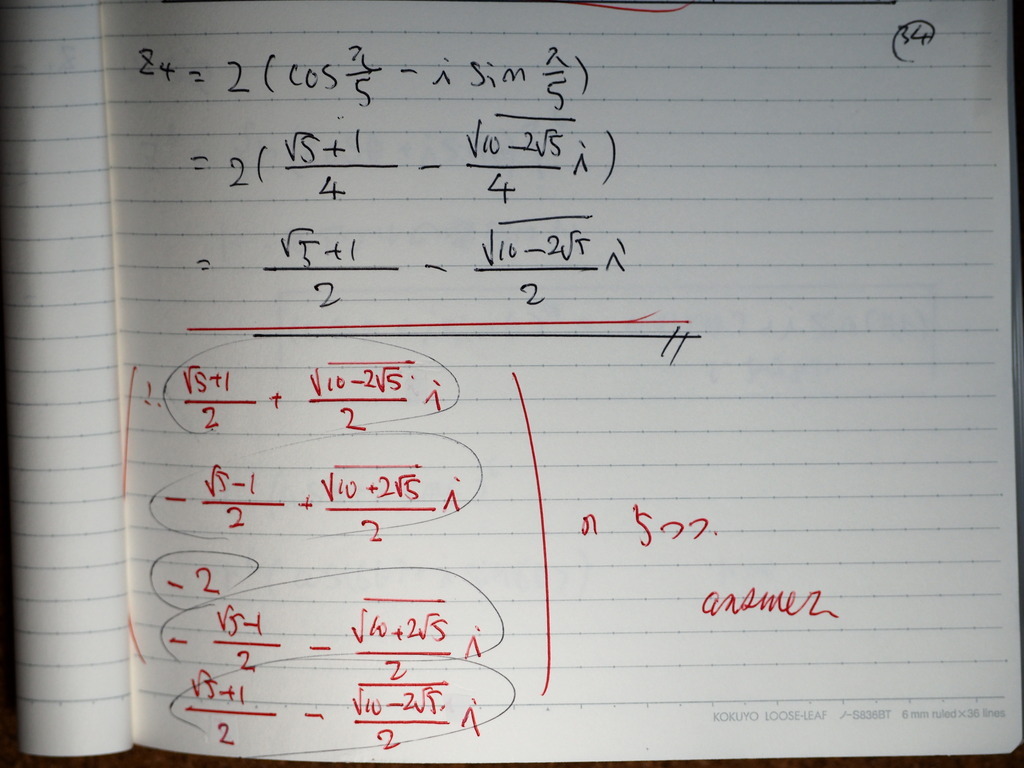 34
z₄ = 2(cos π/5 - i sin π/5)
= 2( (√5+1)/4 - √(10-2√5)/4 i )
= (√5+1)/2 - √(10-2√5)/2 i
∴ (√5+1)/2 + √(10-2√5)/2 i
- (√5-1)/2 + √(10+2√5)/2 i
の 5つ.
answer
-2
- (√5-1)/2 - √(10+2√5)/2 i
(√5+1)/2 - √(10-2√5)/2 i
KOKUYO LOOSE-LEAF ノ-S836BT 6 mm ruled×36 lines